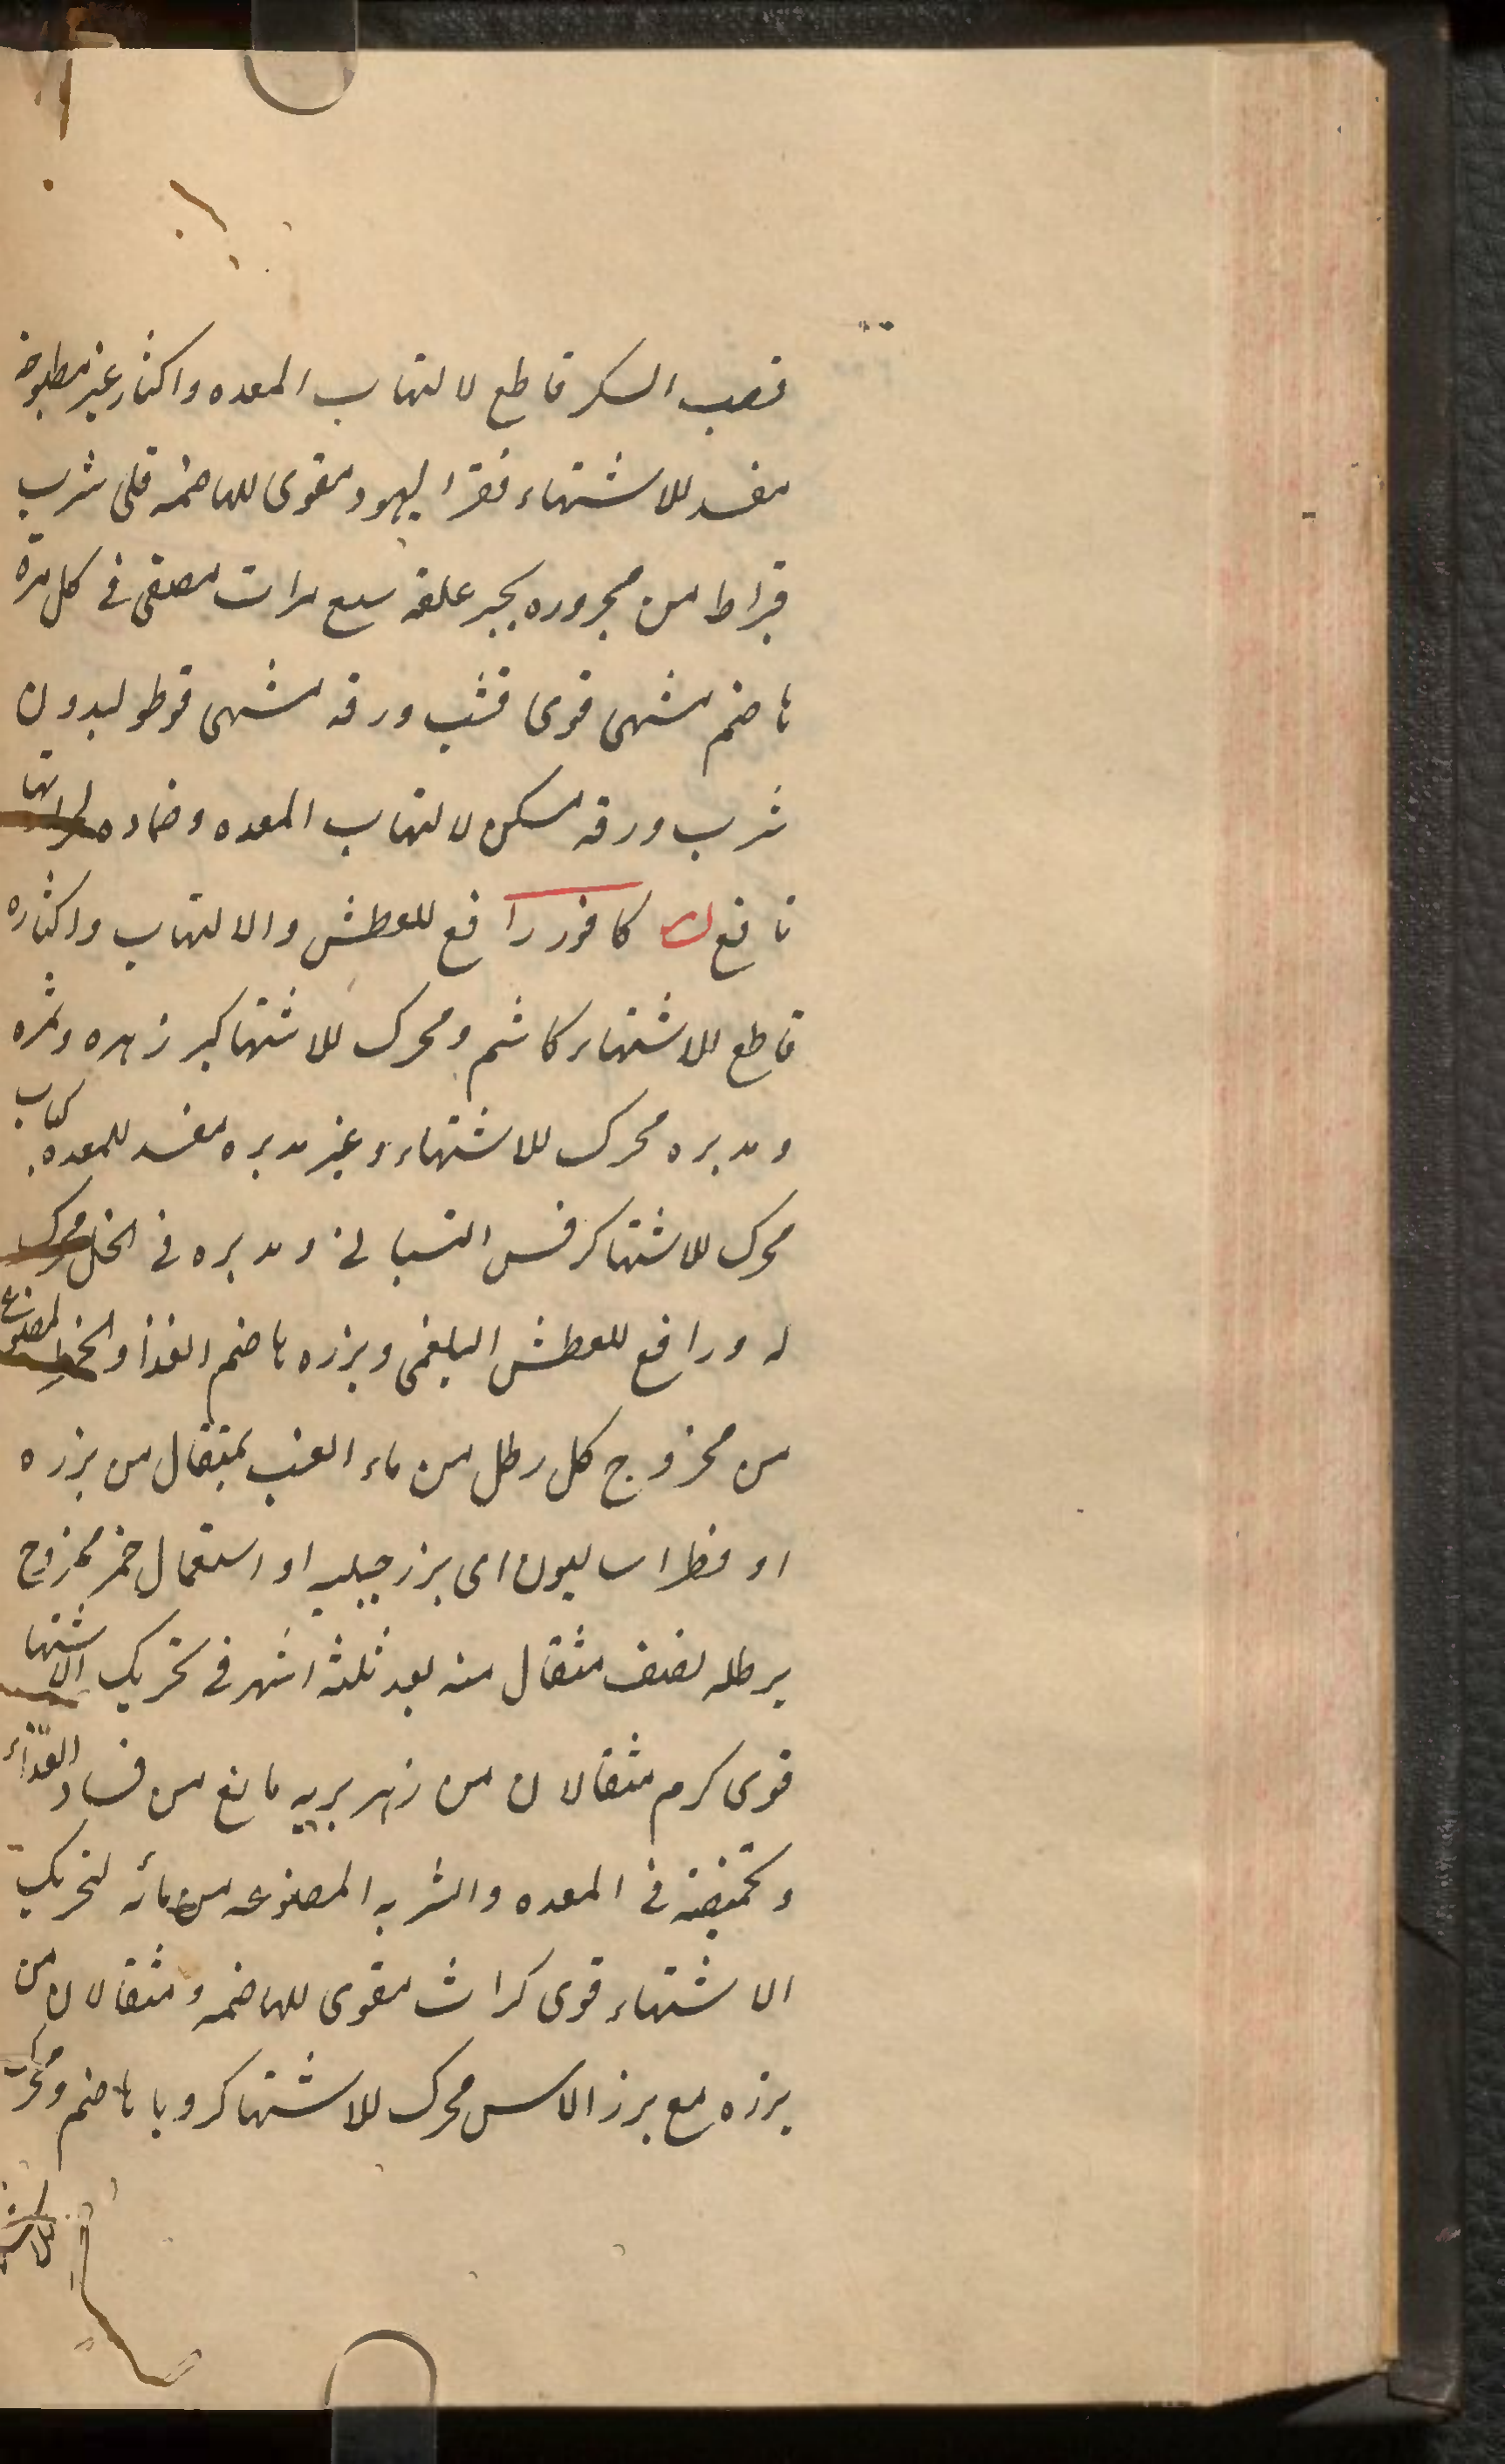 قصب السكر قاطع لالتهاب المعده واكثار غير مطبوخه
مفسد للاشتهاء فقرا ليهود مقوى للهاضمه قلى شرب
قيراط من مجروره بجير علقه سبع مرات مصفى فى كل مرة
هاضم مشهى قوى قنب ورقه مشهى قوطوليدون
شرب ورقه مسكن لالتهاب المعده وضماده لها
نافع ك كافور رافع للعطش والالتهاب واكثاره
قاطع للاشتهاء كاشم ومحرك للاشتها كبر زهره وثمره
ومدبره محرك للاشتهاء وغير مدبره مفسد للمعده كباب
محرك للاشتها كرفس التسبانى ومدبره فى الخل محرك
له ورافع للعطش البلغمى وبزره هاضم الغذا والخمر المصنوع
من مخزوج كل رطل من ماء العنب بمثقال من بزره
او فطراساليون اى بزر جبليه او استعمال خمر مخزوج
برطله نصف مثقال منه بعد ثلثه اشهر فى تحريك الاشتها
قوى كرم مثقالان من زهر بريه مانع من فساد الغذاء
وتحميضه فى المعده والشربه المصنوعه من مائه لتحريك
الاشتهاء قوى كراث مقوى للهاضمه ومثقالان من
بزره مع بزر الاس محرك للاشتها كرويا هاضم ومحرك